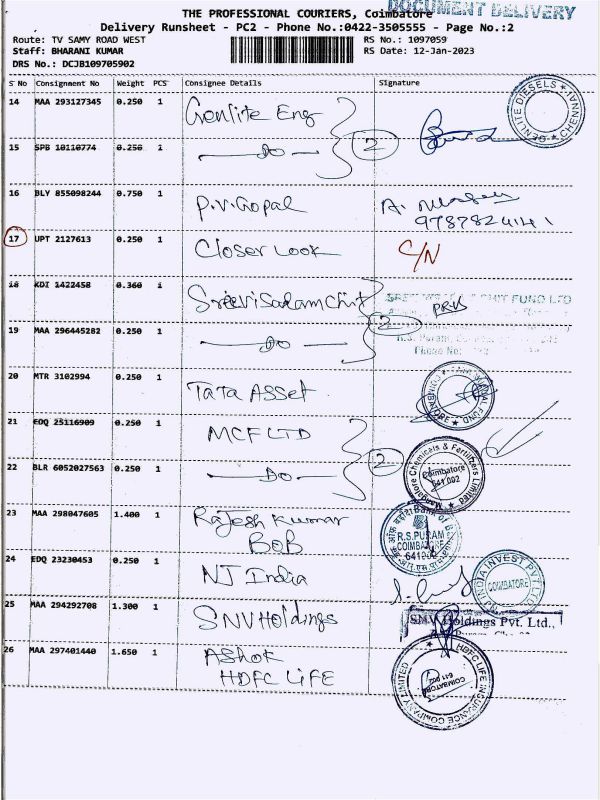 THE PROFESSIONAL COURIERS, Coimbatore
DOCUMENT DELIVERY
Delivery Runsheet - PC2 - Phone No.:0422-3505555 - Page No.:2
Route: TV SAMY ROAD WEST
RS No.: 1097059
Staff: BHARANI KUMAR
RS Date: 12-Jan-2023
DRS No.: DCJB109705902
S No Consignment No Weight PCS Consignee Details Signature
14 MAA 293127345 0.250 1 Genlite Eng
GENLITE DIESELS CHENNAI
15 SPB 10110774 0.250 1 Do 2
16 BLY 855098244 0.750 1 P.V.Gopal A.
9787824141
17 UPT 2127613 0.250 1 Closer Look C/N
18 KDI 1422458 0.360 1 Sreevisadamchit
CHIT FUND LTD
19 MAA 296445282 0.250 1 Do 2
R.S. Puram,
Phone No:
20 MTR 3102994 0.250 1 TaTa Asset
TATA MUTUAL FUND COIMBATORE
21 EDQ 25116909 0.250 1 MCF LTD
Mangalore Chemicals & Fertilizers Limited
Coimbatore
641 002
22 BLR 6052027563 0.250 1 Do 2
23 MAA 298047605 1.400 1 Rajesh Kumar
BOB
Bank of
R.S.PURAM
COIMBATORE
641002
24 EDQ 23230453 0.250 1 NJ India
NJ INDIA INVEST PVT LTD
COIMBATORE
25 MAA 294292708 1.300 1 SNV Holdings
SNV Holdings Pvt. Ltd.,
26 MAA 297401440 1.650 1 Ashok
HDFC LIFE
HDFC LIFE INSURANCE COMPANY LIMITED
COIMBATORE
641 002